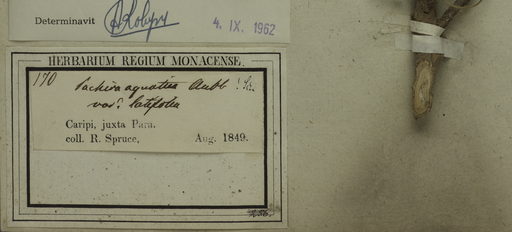 Determinavit ARobyns 4. IX. 1962
HERBARIUM REGIUM MONACENSE.
170 Pachira aquatica Aubl!
var? latifolia
Caripi, juxta Para.
coll. R. Spruce, Aug. 1849.